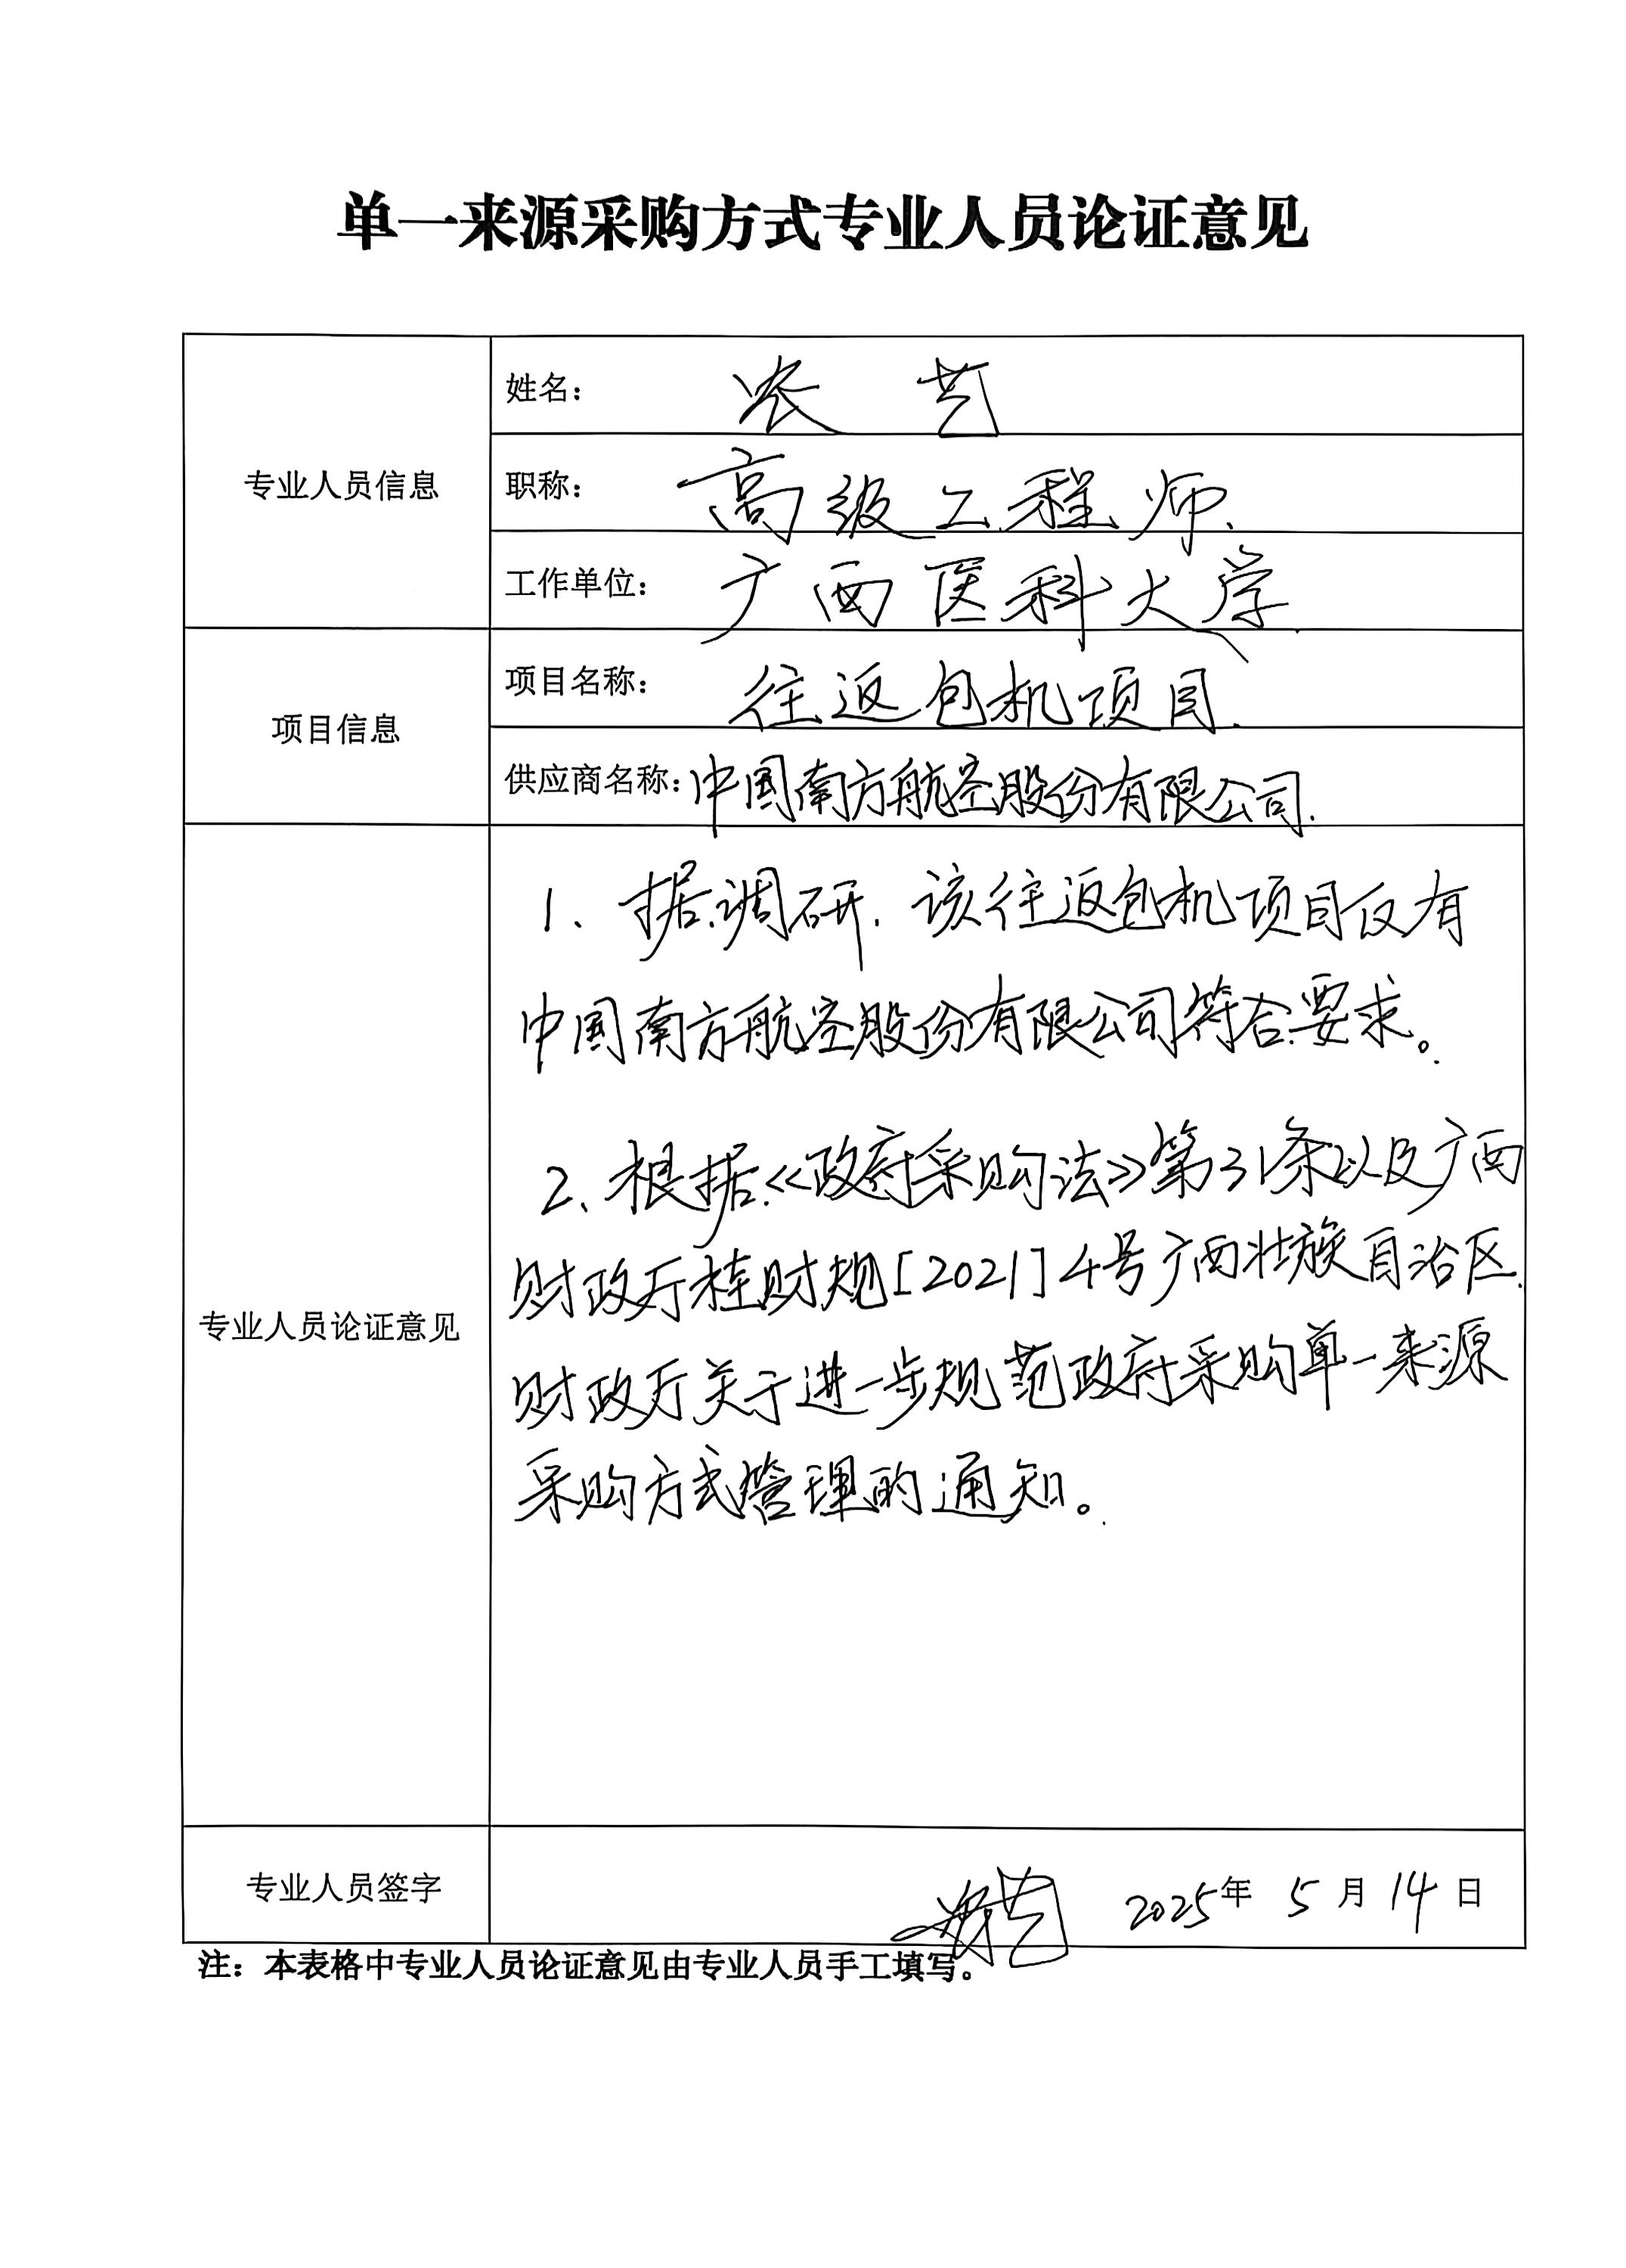 单一来源采购方式专业人员论证意见
专业人员信息
姓名： 农 艺
职称： 高级工程师.
工作单位： 广西医科大学.
项目信息
项目名称： 往返包机项目.
供应商名称：中国南方航空股份有限公司.
专业人员论证意见
1、据调研.该往返包机项目仅有
中国南方航空股份有限公司符合要求。
2、根据《政府采购法》第31条以及广西
财政厅桂财规[2021]4号广西壮族自治区
财政厅关于进一步规范政府采购单一来源
采购方式管理的通知。
专业人员签字
农艺 2025年 5 月 14 日
注：本表格中专业人员论证意见由专业人员手工填写。